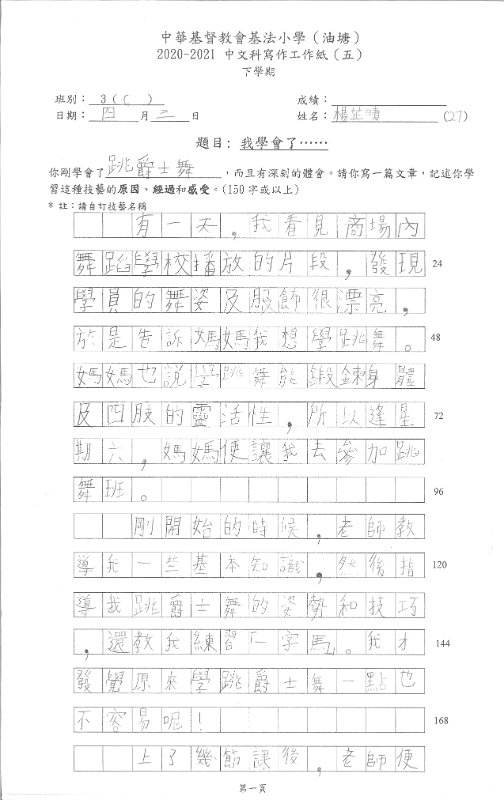 中華基督教會基法小學(油塘)
2020-2021 中文科寫作工作紙(五)
下學期
班別: 3(C) 成績:
日期: 四 月 三 日 姓名: 楊芷晴 (27)
題目:我學會了⋯⋯
你剛學會了 跳爵士舞 ,而且有深刻的體會。請你寫一篇文章,記述你學
習這種技藝的原因、經過和感受。(150字或以上)
* 註:請自訂技藝名稱
有一天,我看見商場內
舞蹈學校播放的片段,發現 24
學員的舞姿及服飾很漂亮,
於是告訴媽媽我想學跳舞。 48
媽媽也說學跳舞能鍛鍊身體
及四肢的靈活性,所以逢星 72
期六,媽媽便讓我去參加跳
舞班。 96
剛開始的時候,老師教
導我一些基本知識,然後指 120
導我跳爵士舞的姿勢和技巧
,還教我練習一字馬。我才 144
發覺原來學跳爵士舞一點也
不容易呢! 168
上了幾節課後,老師便
第一頁